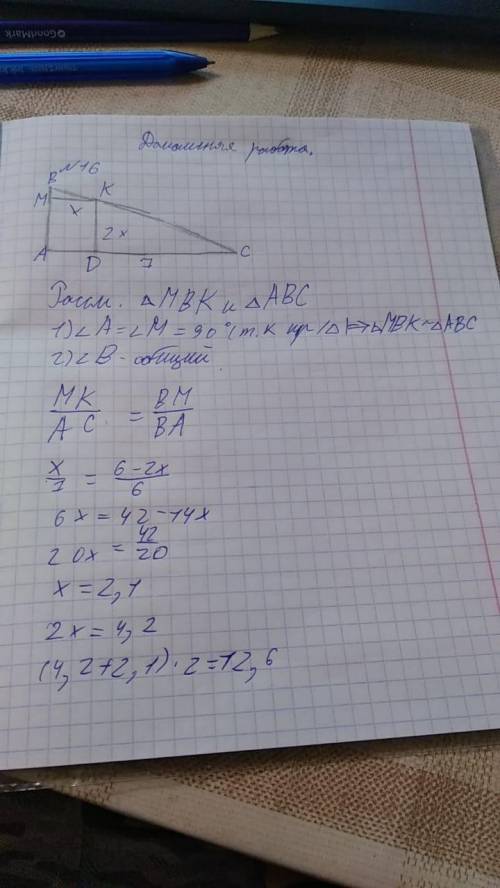 GoodMark
Домашняя работа.
№16
B
M
K
x
2x
A
D
7
C
Рассм. △MBK и △ABC
1) ∠A = ∠M = 90° (т.к пр/△) ⇒ △MBK ~ △ABC
2) ∠B - общий
MK/AC = BM/BA
x/7 = 6-2x/6
6x = 42 - 14x
20x = 42/20
x = 2,1
2x = 4,2
(4,2+2,1)·2=12,6